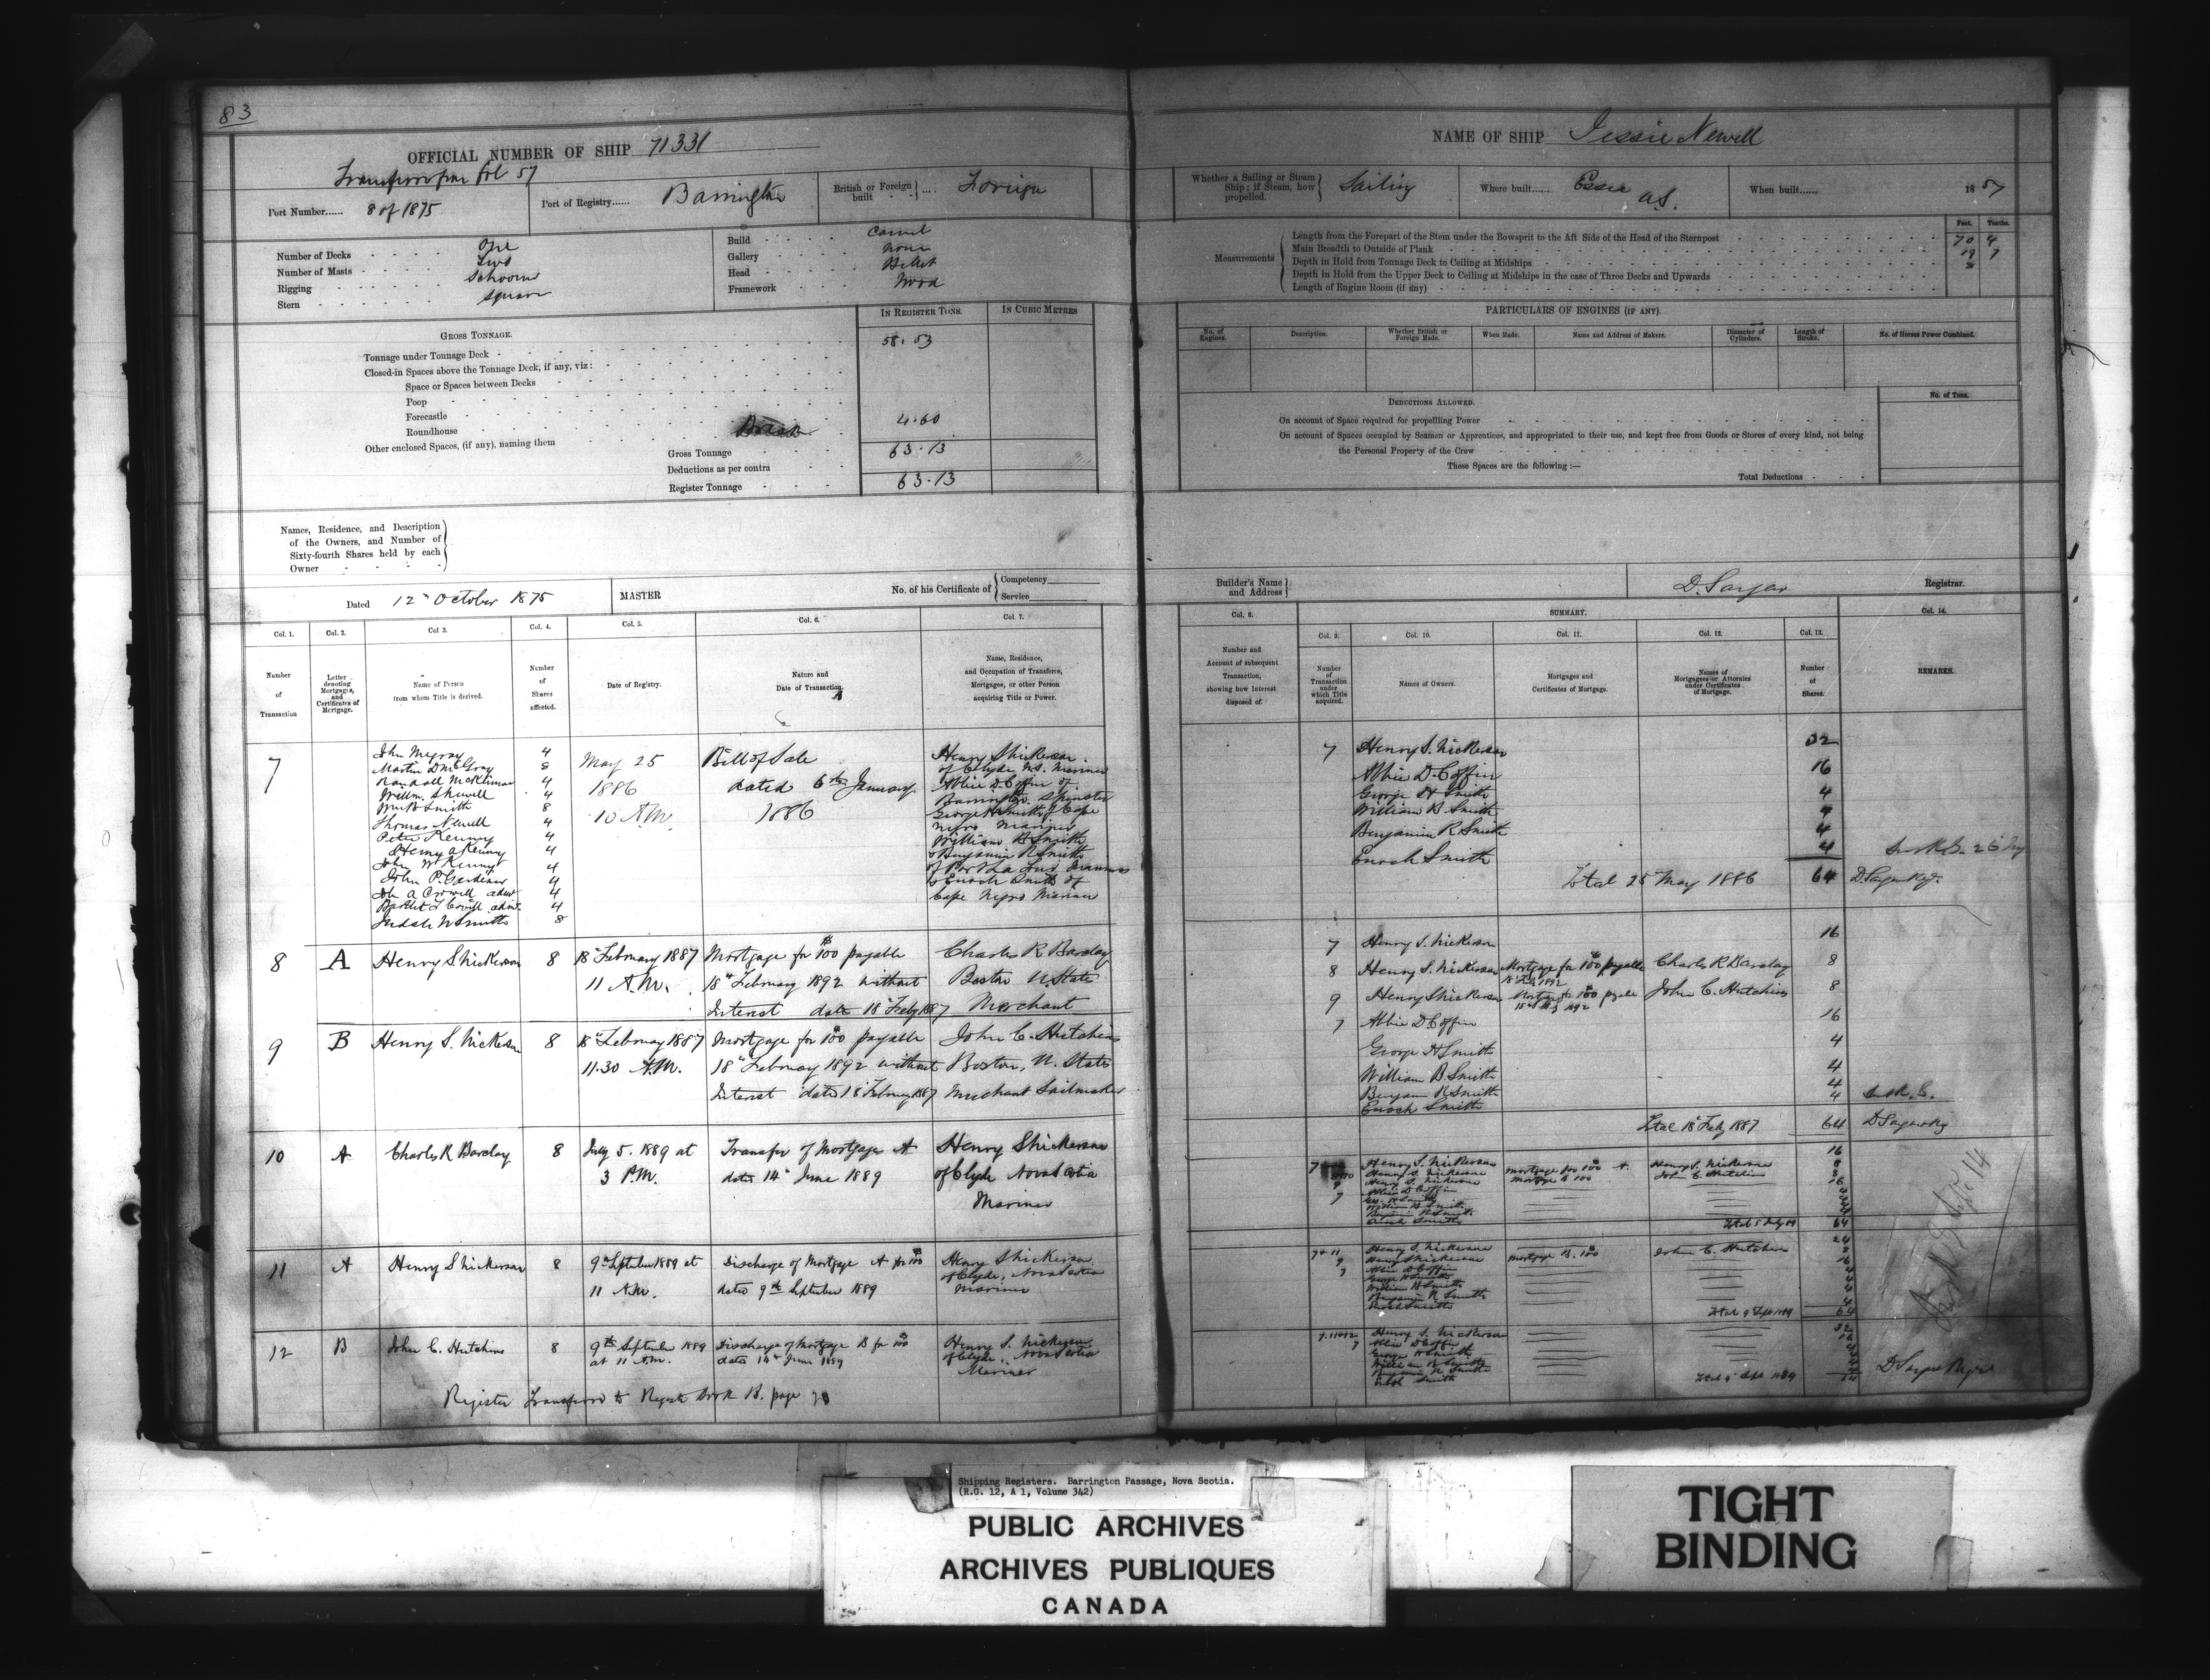 83
OFFICIAL NUMBER OF SHIP 71331
fol 57
Port Number...... 8 of 1875
Port of Registry...... Barrington
British or Foreign built .... Foreign
Number of Decks One
Number of Masts Two
Rigging Schooner
Stern Square
Build Carvel
Gallery None
Head Billet
Framework Wood
GROSS TONNAGE.
IN REGISTER TONS.
IN CUBIC METRES
Tonnage under Tonnage Deck 58.53
Closed-in Spaces above the Tonnage Deck, if any, viz:
Space or Spaces between Decks
Poop
Forecastle
Roundhouse
Other enclosed Spaces, (if any), naming them Break 4.60
Gross Tonnage 63.13
Deductions as per contra
Register Tonnage 63.13
Names, Residence, and Description of the Owners, and Number of Sixty-fourth Shares held by each Owner
Dated 12th October 1875
MASTER
No. of his Certificate of Competency Service
Col. 1. Col. 2. Col 3. Col. 4. Col. 5. Col. 6. Col. 7.
Number of Transaction
Letter denoting Mortgages, and Certificates of Mortgage.
Name of Person from whom Title is derived.
Number of Shares affected.
Date of Registry.
Nature and Date of Transaction.
Name, Residence, and Occupation of Transferee, Mortgagee, or other Person acquiring Title or Power.
7
John McGray 4
Martin D McGray 8
Randall McKinnon 4
4
Wm B Smith 8
Thomas Newell 4
Peter Kenny 4
Henry A Kenny 4
John W Kenny 4
John P. Gardiner 4
John A Crowell admr 4
4
Smith 8
May 25
1886
10 A.M.
Bill of Sale
dated 6th January
1886
Henry S Nickerson
of Clyde N.S. Mariner
Abbie D. Coffin of
Barrington Spinster
George H Smith of Cape
Negro Mariner
William B Smith
& Benjamin R Smith
of Port La Tour Mariners
& Enoch Smith of
Cape Negro Mariner
8 A Henry S Nickerson 8 18th February 1887 Mortgage for $100 payable Charles R Barclay
11 A.M. 18th February 1892 without Boston U State
Interest date 18th Feby 1887 Merchant
9 B Henry S. Nickerson 8 18th February 1887 Mortgage for $100 payable John C. Hutchins
11.30 A.M. 18th February 1892 without Boston, U. State
Interest dated 18 February 1887 Merchant Sailmaker
10 A Charles R Barclay 8 July 5. 1889 at Transfer of Mortgage A Henry S Nickerson
3 P.M. dated 14th June 1889 of Clyde Nova Scotia
Mariner
11 A Henry S Nickerson 8 9th September 1889 at Discharge of Mortgage A for $100 Henry S Nickerson
11 A.M. dated 9th September 1889 of Clyde, Nova Scotia
Mariner
12 B John C. Hutchins 8 9th September 1889 Discharge of Mortgage B for $100 Henry S. Nickerson
at 11 A.M. dated 14th June 1889 of Clyde, Nova Scotia
Mariner
Register Transferred to Register Book B. page
NAME OF SHIP Jessie Newell
Whether a Sailing or Steam Ship; if Steam, how propelled. Sailing
Where built...... Essex U.S.
When built...... 1857
Feet. Tenths.
Measurements
Length from the Forepart of the Stem under the Bowsprit to the Aft Side of the Head of the Sternpost 70 4
Main Breadth to Outside of Plank 19 7
Depth in Hold from Tonnage Deck to Ceiling at Midships
Depth in Hold from the Upper Deck to Ceiling at Midships in the case of Three Decks and Upwards
Length of Engine Room (if any)
PARTICULARS OF ENGINES (IF ANY).
No. of Engines.
Description.
Whether British or Foreign Made.
When Made.
Name and Address of Makers.
Diameter of Cylinders.
Length of Stroke.
No. of Horses Power Combined.
DEDUCTIONS ALLOWED.
No. of Tons.
On account of Space required for propelling Power
On account of Spaces occupied by Seamen or Apprentices, and appropriated to their use, and kept free from Goods or Stores of every kind, not being
the Personal Property of the Crew
These Spaces are the following:—
Total Deductions
Builder's Name and Address
D. Sargent Registrar.
Col. 8. SUMMARY. Col. 14.
Col. 9. Col. 10. Col. 11. Col. 12. Col. 13.
Number and Account of subsequent Transaction, showing how Interest disposed of.
Number of Transaction under which Title acquired.
Names of Owners.
Mortgages and Certificates of Mortgage.
Names of Mortgagees or Attornies under Certificates of Mortgage.
Number of Shares.
REMARKS.
7 Henry S. Nickerson 32
Abbie D. Coffin 16
George H Smith 4
William B. Smith 4
Benjamin R Smith 4
Enoch Smith 4
Total 25 May 1886 64 D Sargent Regr.
7 Henry S. Nickerson 16
8 Henry S. Nickerson Mortgage for $100 payable Charles R Barclay 8
18 Feb 1892
9 Henry S Nickerson Mortgage for $100 payable John C. Hutchins 8
7 Abbie D. Coffin 16
George H Smith 4
William B. Smith 4
Benjamin R Smith 4
Enoch Smith 4
Total 18 Feby 1887 64 D Sargent Reg
7 Henry S. Nickerson 16
Henry S. Nickerson Mortgage for 100 A. Henry S. Nickerson 8
9 Henry S. Nickerson Mortgage B 100 John C. Hutchins 8
7 Abbie D Coffin 16
Geo. H Smith 4
William B Smith 4
Benjamin R Smith 4
Enoch Smith 4
64
7 & 11 Henry S. Nickerson 24
9 Henry S Nickerson Mortgage B. 100 John C. Hutchins 8
7 Abbie D Coffin 16
George H Smith 4
William B Smith 4
Benjamin R Smith 4
Enoch Smith 4
Total 9 Sept 1889 64
7.11 & 12 Henry S. Nickerson 32
7 Abbie D Coffin 16
George H Smith
William B Smith
Benjamin R Smith
Enoch Smith
Total 9 Sept 1889 64
D Sargent Regr
Shipping Registers. Barrington Passage, Nova Scotia.
(R.G. 12, A 1, Volume 342)
PUBLIC ARCHIVES
ARCHIVES PUBLIQUES
CANADA
TIGHT
BINDING